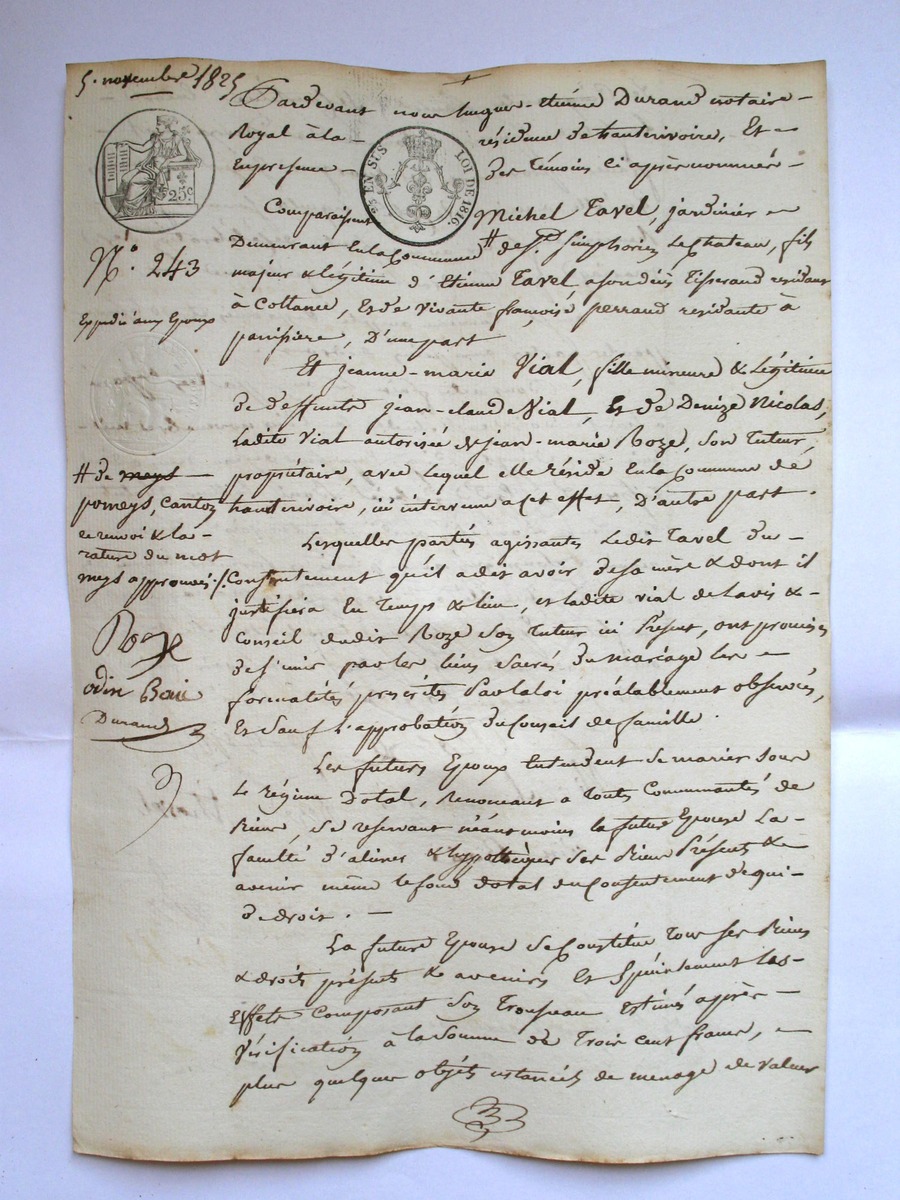 5. novembre 1825
Pardevant nous hugues-étienne Durand notaire
Royal à la résidence de hauterivoire, Et
En présence des témoins ci après nommés
Comparaissent Michel Tavel, jardinier
Demeurant En la Commune # de St Simphorien le Chateau, fils
majeur & légitime d'Etienne Tavel a son décès tisserand résidant
à Cottance, et de vivante françoise perrand residante à
panissiere, D'une part
Et jeanne-marie Vial, fille mineure & Légitime
de deffunts jean-claude Vial, Et de Denize Nicolas,
Ladite Vial autorisée de jean-marie Roze, son tuteur
propriétaire, avec lequel elle réside En la Commune de
hauterivoire, ici intervenu a cet effet, D'autre part.
Lesquelles parties agissantes Ledit Tavel du
Consentement qu'il a dit avoir de sa mère & dont il
justifiera En temps & lieu, et ladite vial de l'avis &
Conseil dudit Roze son tuteur ici Présent, ont promis
de s'unir par les liens Sacrés du mariage les
formalités prescrites Par la loi préalablement observées,
Et Sauf L'approbation du Conseil de famille.
Les futurs Epoux Entendent se marier sous
Le régime Dotal, Renonceant a toutes Communautés de
Biens, se reservant néantmoins la future Epouse La
faculté d'aliéner & hypothéquer ses Biens Présents &
avenir même le fond dotal du Consentement de qui
de droit.
La future Epouse se Constitue tous ses Biens
& droits présents & avenirs Et Spécialement les
Effets Composant son trousseau Estimés après
Vérification à la Somme de Trois cent francs,
plus quelques objets ustancils de menage de valeur
25c
EN SUS
LOI DE 1816.
N.° 243
Expédié aux Epoux
# de meys
pomeys, canton
ce renvoi & la
rature du mot
meys approuvés ./.
Roze
odin
Durand